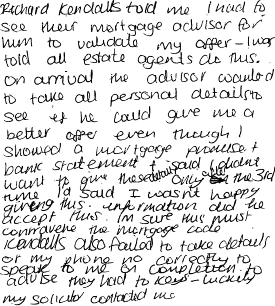 Richard Kendalls told me I had to
see their mortgage advisor for
him to validate my offer - I was
told all estate agents do this.
On arrival the advisor wanted
to take all personal details to
see if he could give me a
better offer even though I
showed a mortgage promise &
bank statement & said I didnt
want to give these details only after the 3rd
time I'd said I wasn't happy
giving this information did he
accept this. I'm sure this must
contravene the mortgage code.
Kendalls also failed to take details
of my phone no correctly to
speak to me on completion to
advise they had to keys - luckily
my solicitor contacted me